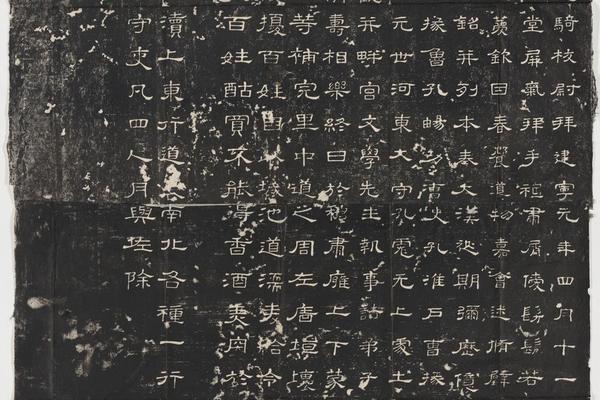 騎校尉拜建寧元年四月十一
堂屏氣拜手祗肅屑僾髣髴若
薦欽因春饗導物嘉會述脩辟
銘并列本奏大漢延期彌歷億
掾魯孔暢功曹史孔淮戶曹掾
元世河東大守孔彪元上處士
觀并畔官文學先生執事諸弟子
壽相樂終日於穆肅雍上下蒙
等補完里中道之周左廧垣壞
擾百姓自以城池道濡麥給令
百姓酤買不能得香酒美肉於
瀆上東行道表南北各種一行
守吏凡四人月與佐除